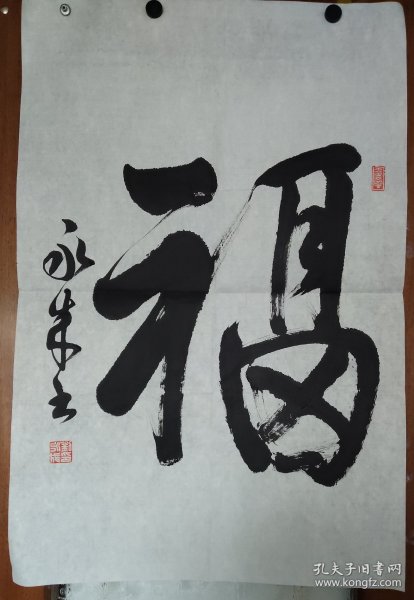 福
永年书
孔夫子旧书网
www.kongfz.com